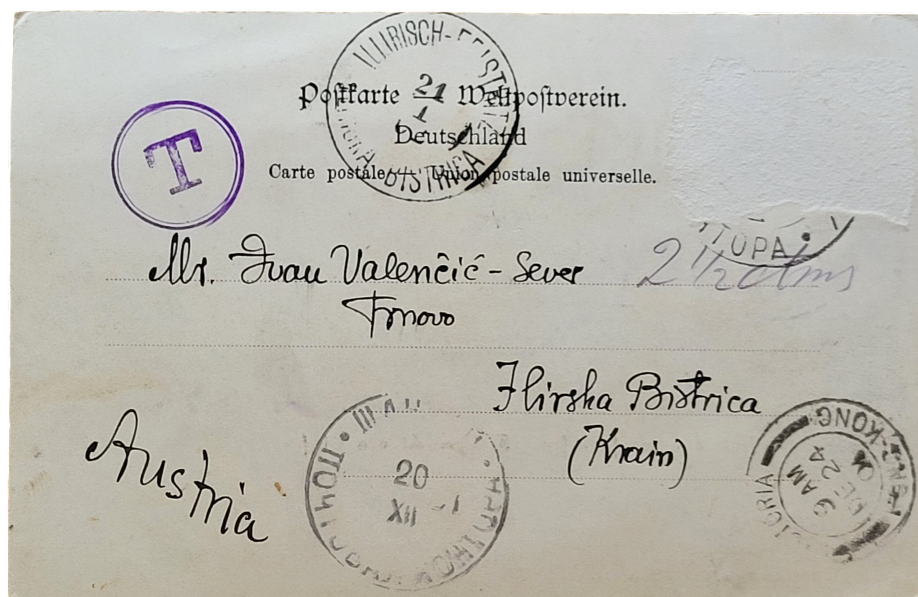 ILLIRISCH-FEISTRITZ
BISTRICA
21
1
Postkarte Weltpostverein.
Deutschland
Carte postale Union postale universelle.
T
Mr. Ivan Valenčić - Sever
Trnovo
2 1/2
Ilirska Bistrica
(Krain)
Austria
20
XII
VICTORIA
HONG-KONG
9 AM
DE 24